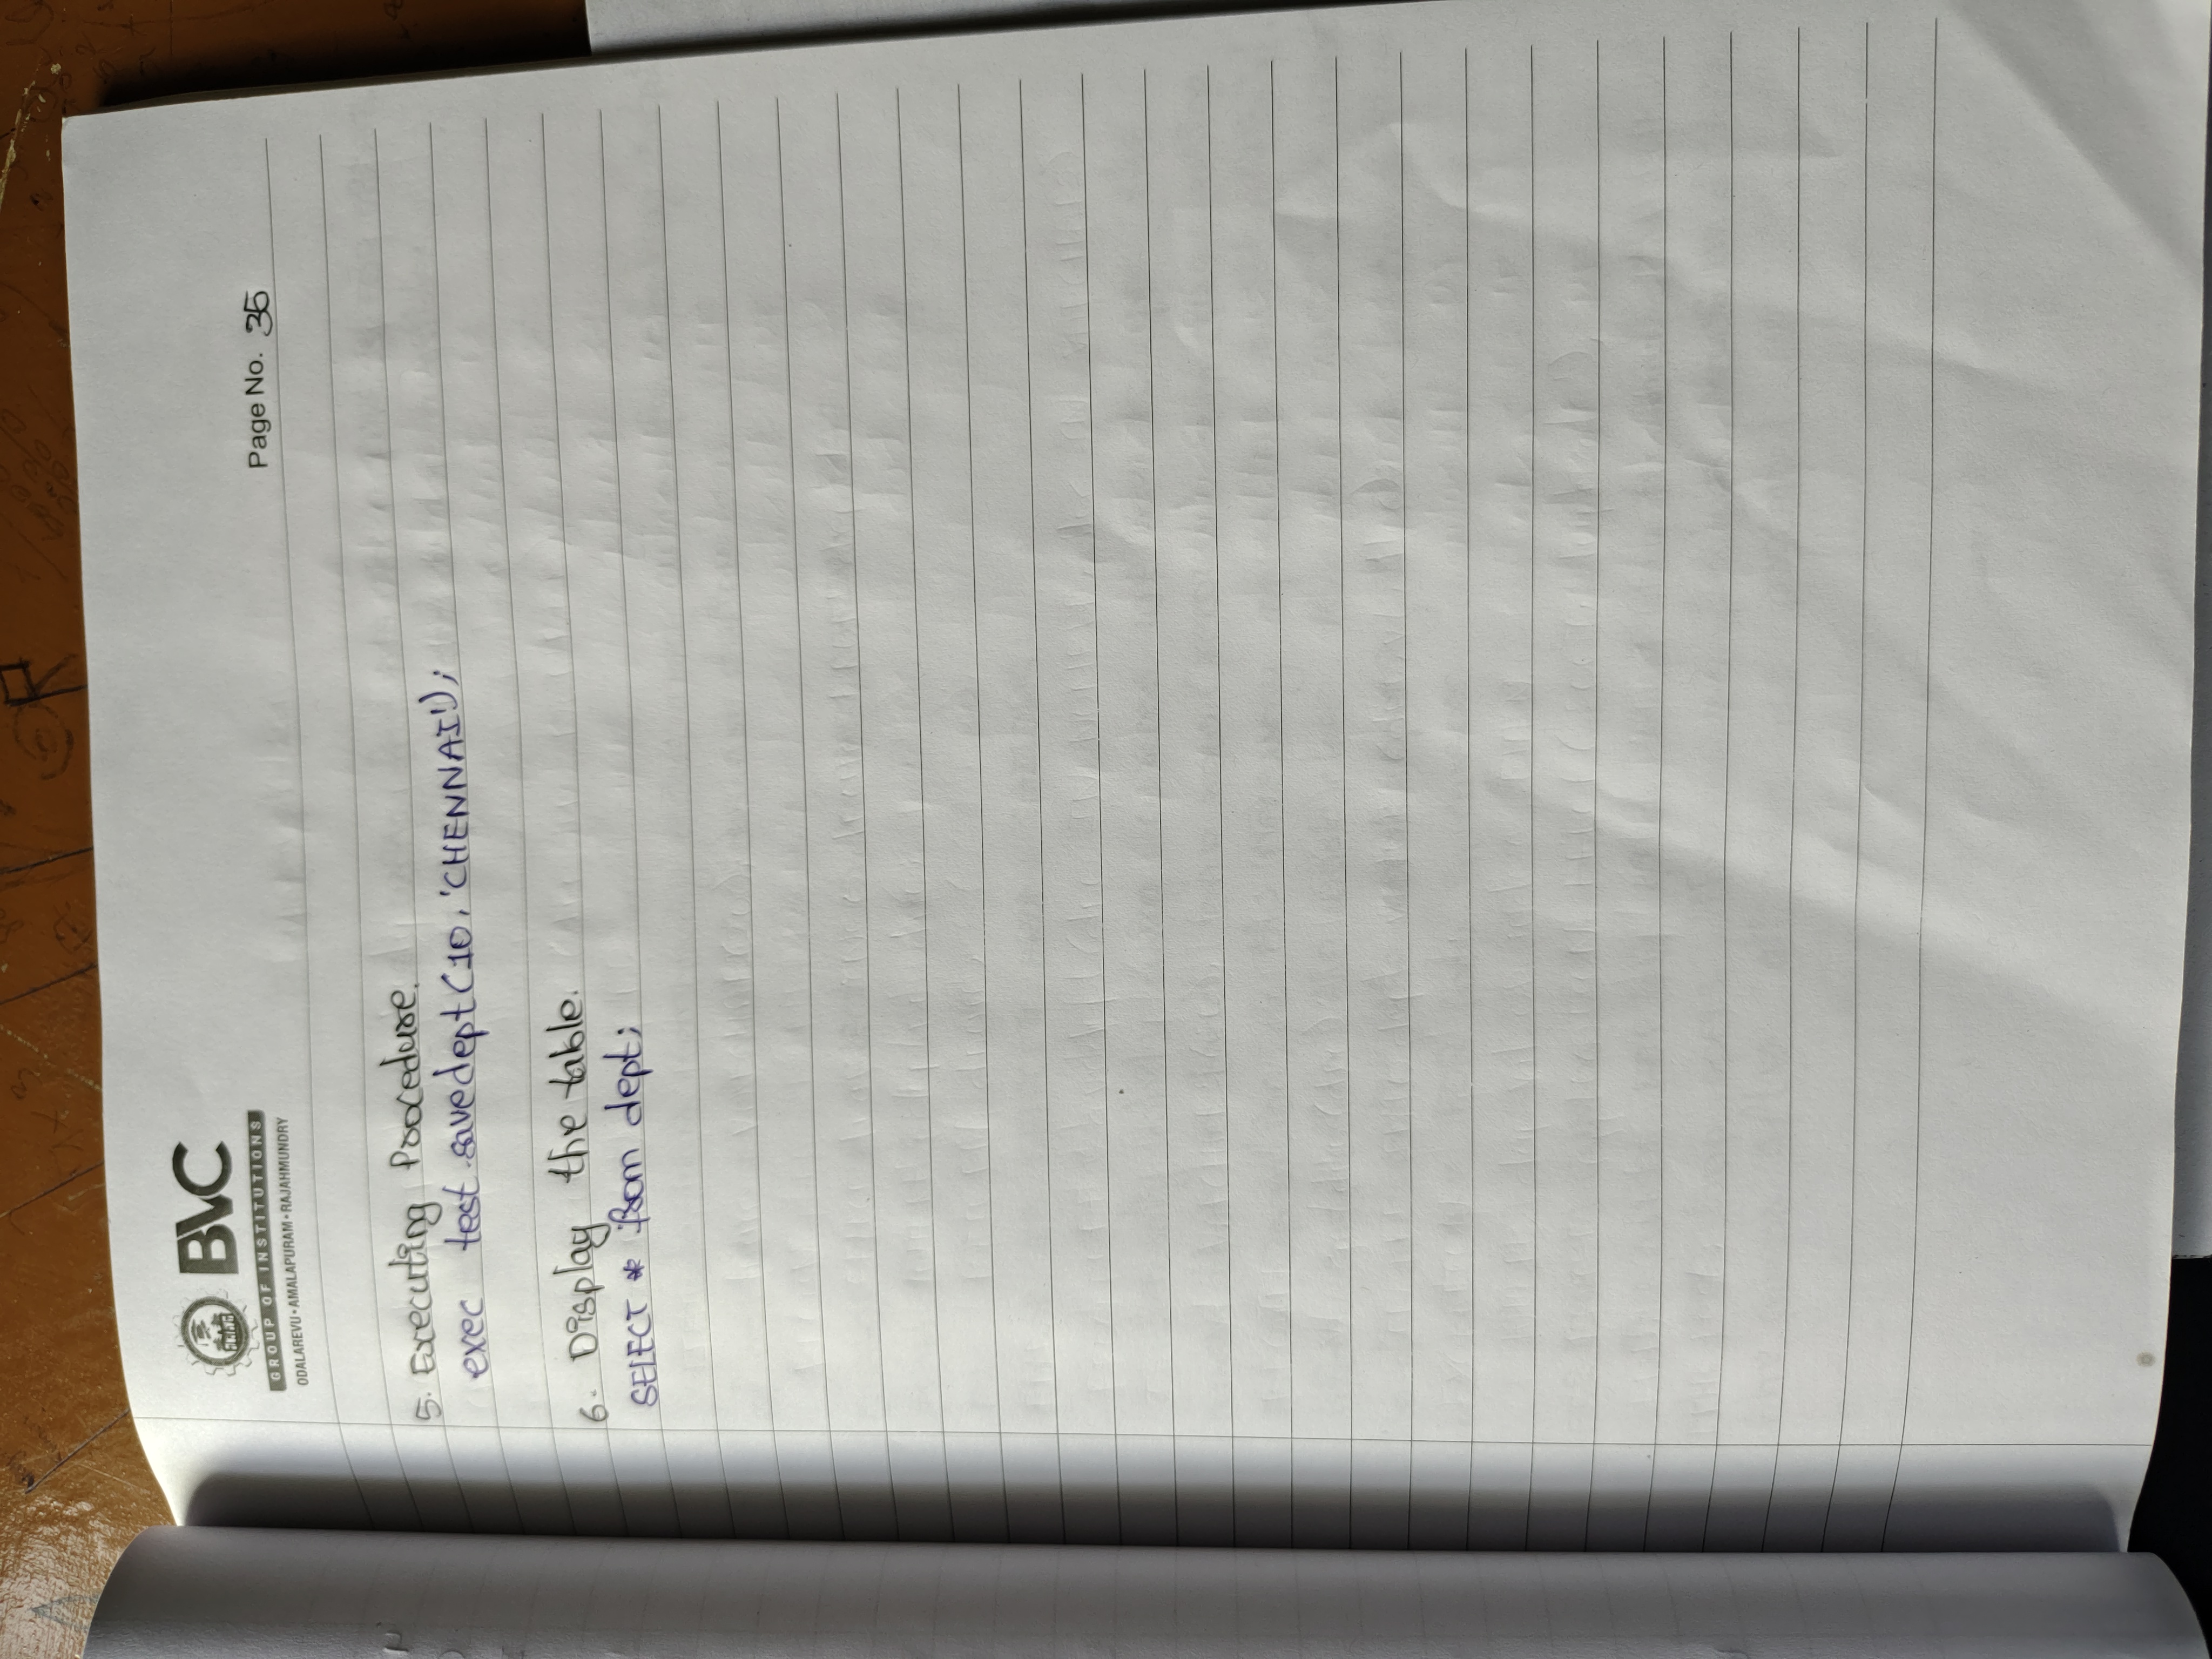 BVC
GROUP OF INSTITUTIONS
ODALAREVU • AMALAPURAM • RAJAHMUNDRY
Page No. 35
5. Executing Procedure.
exec test.savedept(10, 'CHENNAI');
6. Display the table.
SELECT * from dept;